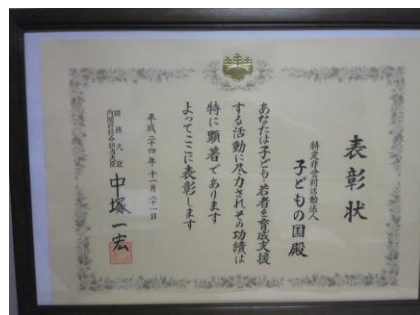 表彰状
特定非営利活動法人
子どもの国殿
あなたは子ども・若者を育成支援
する活動に尽力されその功績は
特に顕著であります
よってここに表彰します
平成二十四年十一月二十一日
国務大臣
内閣府特命担当大臣
中塚一宏